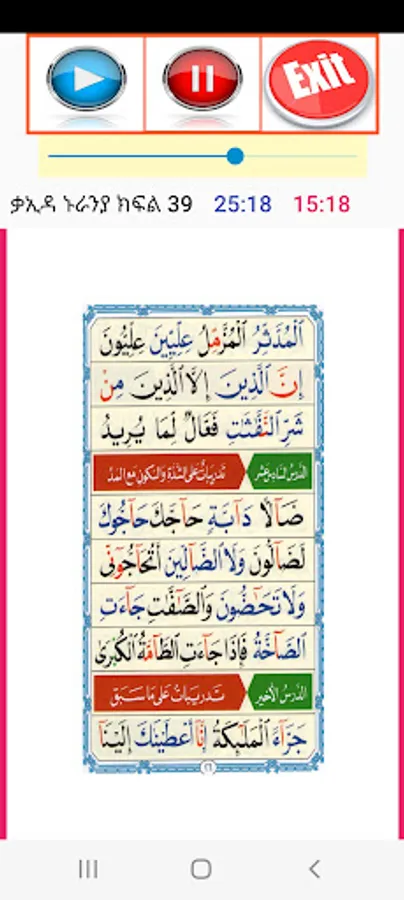 Exit
ቃኢዳ ኑራንያ ክፍል 39 25:18 15:18
ٱلْمُدَّثِّرُ ٱلْمُزَّمِّلُ عِلِّيِّينَ عِلِّيُّونَ
إِنَّ ٱلَّذِينَ إِلَّا ٱلَّذِينَ مِنْ
شَرِّ ٱلنَّفَّٰثَٰتِ فَعَّالٌ لِّمَا يُرِيدُ
الدَّرْسُ السَّادِسَ عَشَرَ تَدْرِيبَاتٌ عَلَى الشَّدَّةِ وَالسُّكُونِ مَعَ المَدِّ
ضَآلًّا دَآبَّةٍ حَآجَّكَ حَآجُّوكَ
لَضَآلُّونَ وَلَا ٱلضَّآلِّينَ أَتُحَٰٓجُّوٓنِّى
وَلَا تَحَٰٓضُّونَ وَٱلصَّٰٓفَّٰتِ جَآءَتِ
ٱلصَّآخَّةُ فَإِذَا جَآءَتِ ٱلطَّآمَّةُ ٱلْكُبْرَىٰ
الدَّرْسُ الأَخِير تَدْرِيبَاتٌ عَلَى مَا سَبَقَ
جَزَآءً ٱلْمَلَٰٓئِكَةُ إِنَّآ أَعْطَيْنَٰكَ إِلَيْنَآ